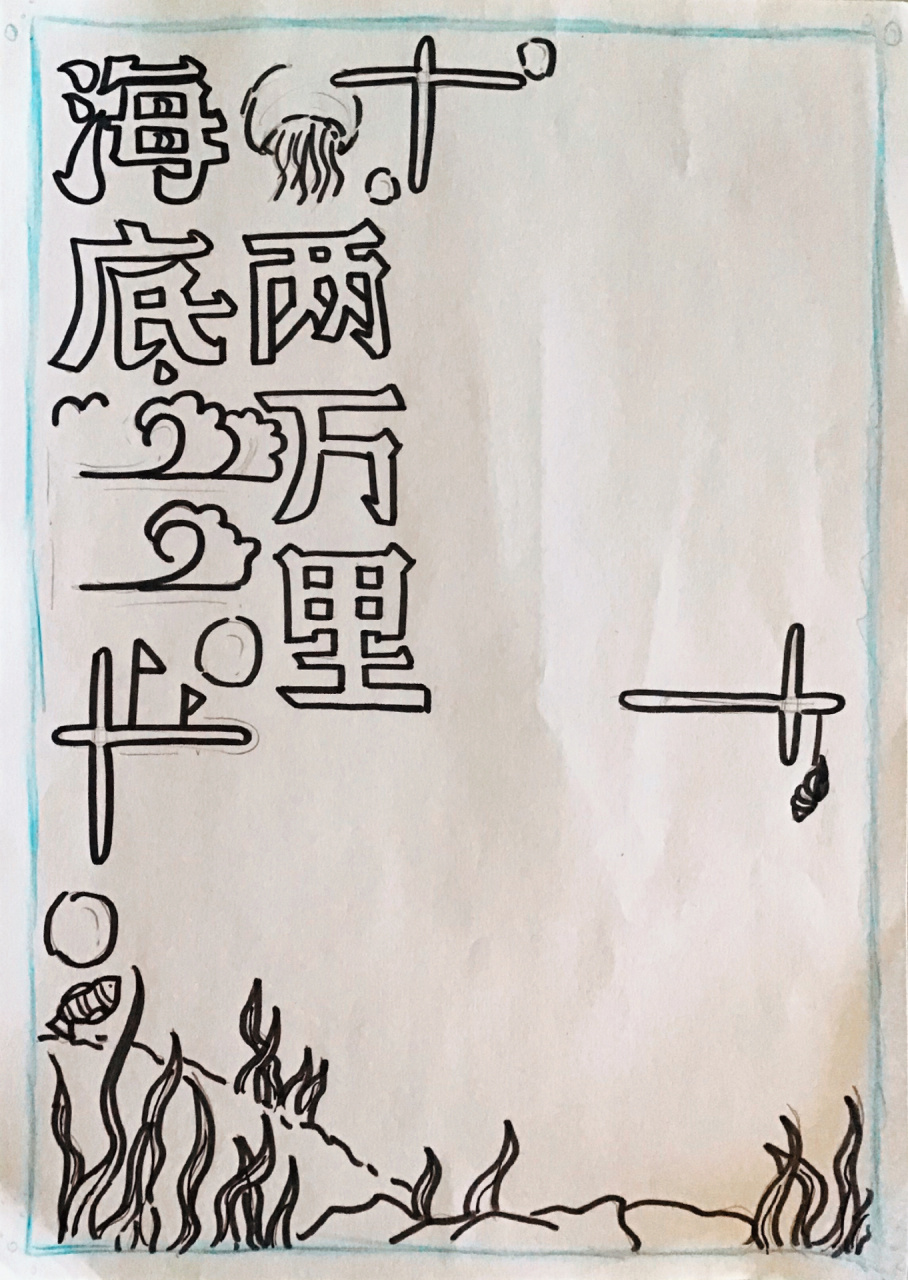 海底
两万里